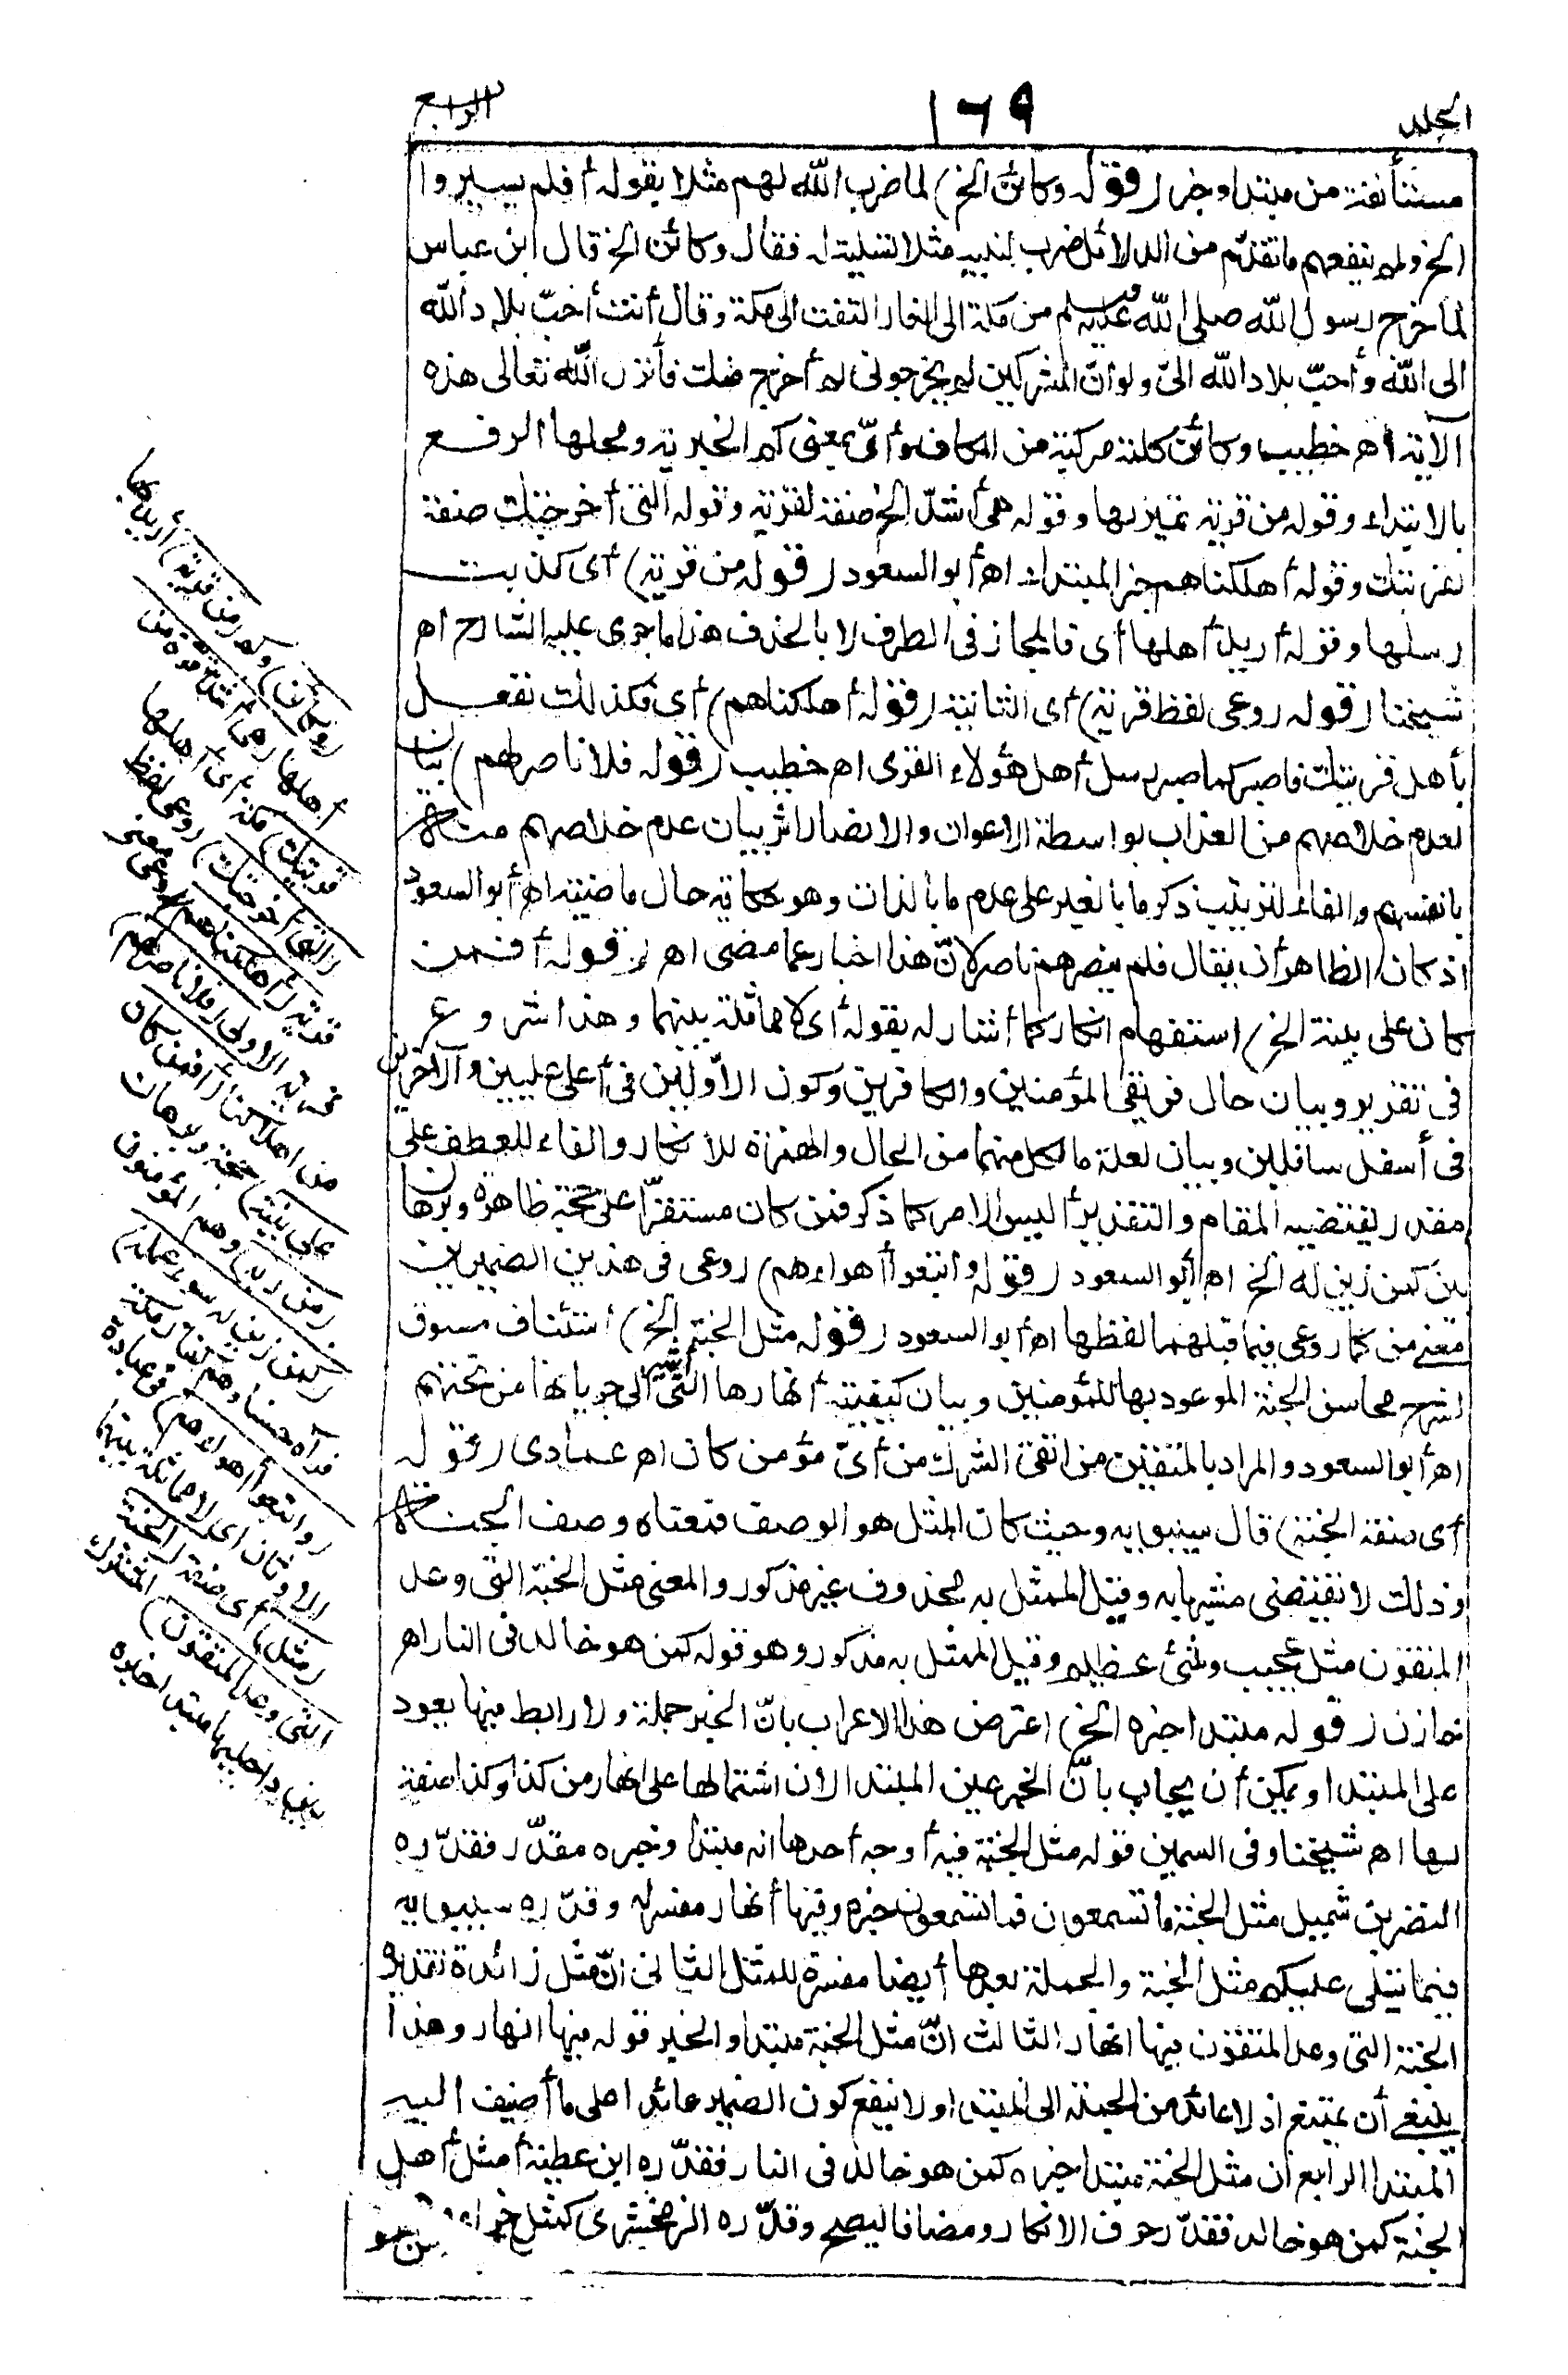 الجلد
١٦٩
الرابع
مستأنفة من مبتدا وخبر (قوله وكائن الخ) لما ضرب الله لهم مثلا بقوله أفلم يسيروا
الخ ولم ينفعهم ما تقدّم من الدلائل ضرب لنبيه مثلا تسلية له فقال وكائن الخ قال ابن عباس
لما خرج رسول الله صلى الله عليه وسلم من مكة الى الغار التفت الى مكة وقال أنت أحبّ بلاد الله
الى الله وأحبّ بلاد الله الىّ ولو انّ المشركين لم يخرجونى لم أخرج منك فأنزل الله تعالى هذه
الآية اهـ خطيب وكائن كلمة مركبة من الكاف وأىّ بمعنى كم الخبرية ومحلها الرفع
بالابتداء وقوله من قرية تمييز لها وقوله هى أشدّ الخ صفة لقرية وقوله التى أخرجتك صفة
لقريتك وقوله أهلكناهم خبر المبتداء اهـ أبو السعود (قوله من قرية) أى كذبت
رسلها وقوله أريد أهلها أى فالمجاز فى الطرف لا بالحذف هذا ما جرى عليه الشارح اهـ
شيخنا (قوله روعى لفظ قرية) أى الثانية (قوله أهلكناهم) أى فكذلك نفعل
بأهل قريتك فاصبر كما صبر رسل أهل هؤلاء القرى اهـ خطيب (قوله فلا ناصر لهم) بيان
لعدم خلاصهم من العذاب بواسطة الاعوان والانصار اثر بيان عدم خلاصهم منه
بانفسهم والفاء لترتيب ذكر ما بالغير على عدم ما بالذات وهو حكاية حال ماضية اهـ أبو السعود
اذ كان الظاهر أن يقال فلم ينصرهم ناصر لانّ هذا اخبار عما مضى اهـ (قوله أفمن
كان على بينة الخ) استفهام انكار كما أشار له بقوله أى لا مماثلة بينهما وهذا شروع
فى تقرير وبيان حال فريقى المؤمنين والكافرين وكون الأوّلين فى أعلى عليين والآخرين
فى أسفل سافلين وبيان لعلة ما لكل منهما من الحال والهمزة للانكار والفاء للعطف على
مقدر يقتضيه المقام والتقدير أليس الامر كما ذكر فمن كان مستقرّا على حجة ظاهرة وبرهان
بيّن كمن زين له الخ اهـ أبو السعود (قوله واتبعوا أهواءهم) روعى فى هذين الضميرين
معنى من كما روعى فيما قبلهما لفظها اهـ أبو السعود (قوله مثل الجنة الخ) استئناف مسوق
لشرح محاسن الجنة الموعود بها للمؤمنين وبيان كيفية أنهارها التى أشير الى جريانها من تحتهم
اهـ أبو السعود والمراد بالمتقين من اتقى الشرك من أىّ مؤمن كان اهـ عمادى (قوله
أى صفة الجنة) قال سيبويه وحيث كان المثل هو الوصف فمعناه وصف الجنة
وذلك لا يقتضى مشبها به وقيل الممثل به محذوف غير مذكور والمعنى مثل الجنة التى وعد
المتقون مثل عجيب وشئ عظيم وقيل الممثل به مذكور وهو قوله كمن هو خالد فى النار اهـ
خازن (قوله مبتدا خبره الخ) اعترض هذا الاعراب بانّ الخبر جملة ولا رابط فيها يعود
على المبتدا ويمكن أن يجاب بانّ الخبر عين المبتدا لان اشتمالها على انهار من كذا وكذا صفة
لها اهـ شيخنا وفى السمين قوله مثل الجنة فيه أوجه أحدها انه مبتدأ وخبره مقدّر فقدّره
النضر بن شميل مثل الجنة ما تسمعون فما تسمعون خبره وفيها أنهار مفسر له وقدّره سيبويه
فيما يتلى عليكم مثل الجنة والجملة بعدها أيضا مفسرة للمثل الثانى انّ مثل زائدة تقديره
الجنة التى وعد المتقون فيها انهار الثالث انّ مثل الجنة مبتدا والخبر قوله فيها انهار وهذا
ينبغى أن يمتنع اذ لا عائد من الجملة الى المبتدا ولا ينفع كون الضمير عائدا على ما أضيف اليه
المبتدا الرابع ان مثل الجنة مبتدا خبره كمن هو خالد فى النار فقدّره ابن عطية أمثل أهل
الجنة كمن هو خالد فقدّر حرف الانكار ومضافا ليصح وقدّره الزمخشرى كمثل جزاء من هو
(وكائن) وكم (من قرية) أريد بها
أهلها (هى أشدّ قوة من
قريتك) مكة أى أهلها
(التى أخرجتك) روعى لفظ
قرية (أهلكناهم) روعى معنى
قرية الاولى (فلا ناصر لهم)
من اهلاكنا (أفمن كان
على بينة) حجة وبرهان
(من ربه) وهم المؤمنون
(كمن زين له سوء عمله)
فرآه حسنا وهم كفار مكة
(واتبعوا أهواءهم) فى عبادة
الاوثان أى لا مماثلة بينهما
(مثل) أى صفة (الجنة
التى وعد المتقون) المشتركة
بين داخليها مبتدا خبره